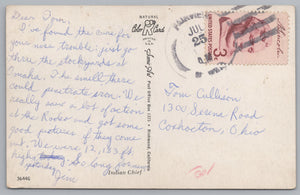 Dear Tom,
I've found the cure for
your nose trouble: just go
thru the stockyards at
Omaha. The smell there
could penetrate iron. We
really saw a lot of action
at the Rodeo and got some
good pictures if they come
out. We were 12,183 ft.
high yesterday. So long for now
Jim
Indian Chief
36446
NATURAL
Color Card
Post Office Box
Richmond, California
JUL
25
Tom Cullison
1300 Serena Road
Coshocton, Ohio
3¢